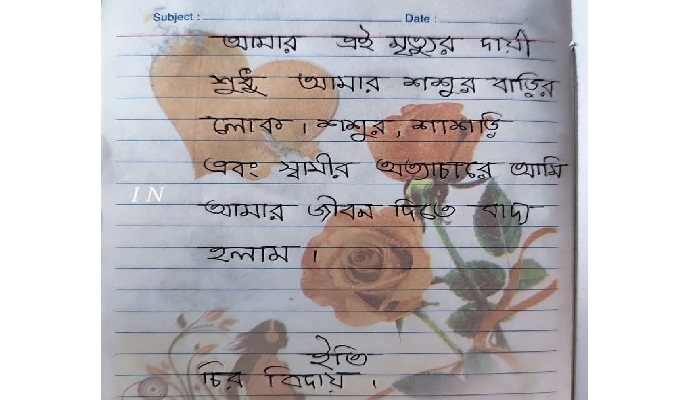 Subject : Date :
আমার এই মৃত্যুর দায়ী
শুধু আমার শশুর বাড়ির
লোক । শশুর , শাশড়ি
এবং স্বামীর অত্যাচারে আমি
IN
আমার জীবন দিতে বাদ্য
হলাম ।
ইতি
চির বিদায় ।